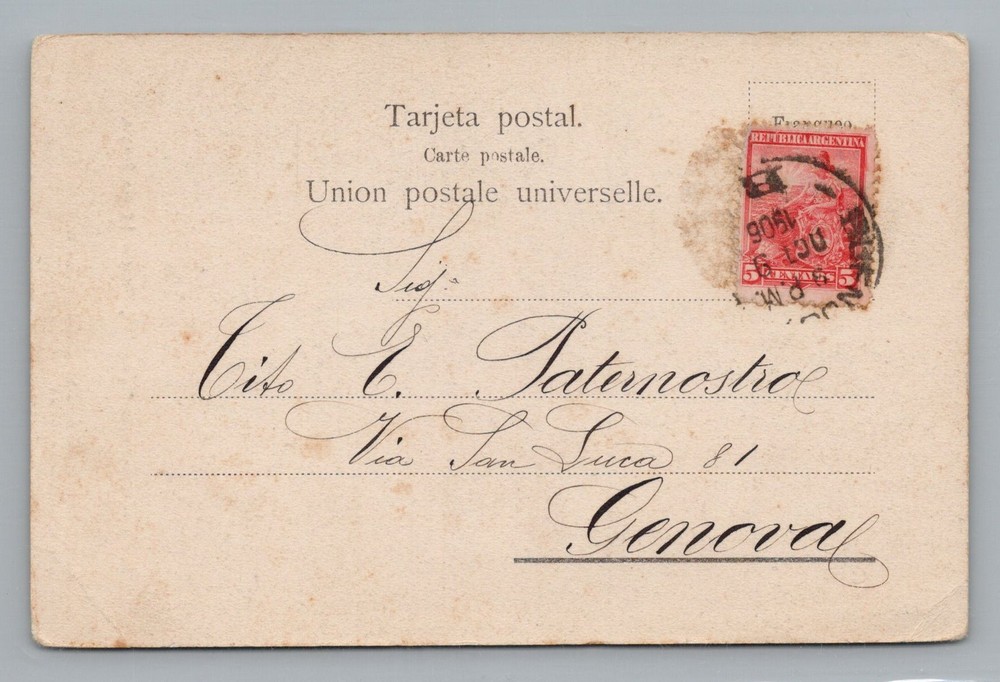 Tarjeta postal.
Carte postale.
Union postale universelle.
Franqueo
REPUBLICA ARGENTINA
5 CENTAVOS 5
B
1906
OCT 9
P.M.
BUENOS
Sig.
Tito E. Paternostro
Via San Luca 81
Genova